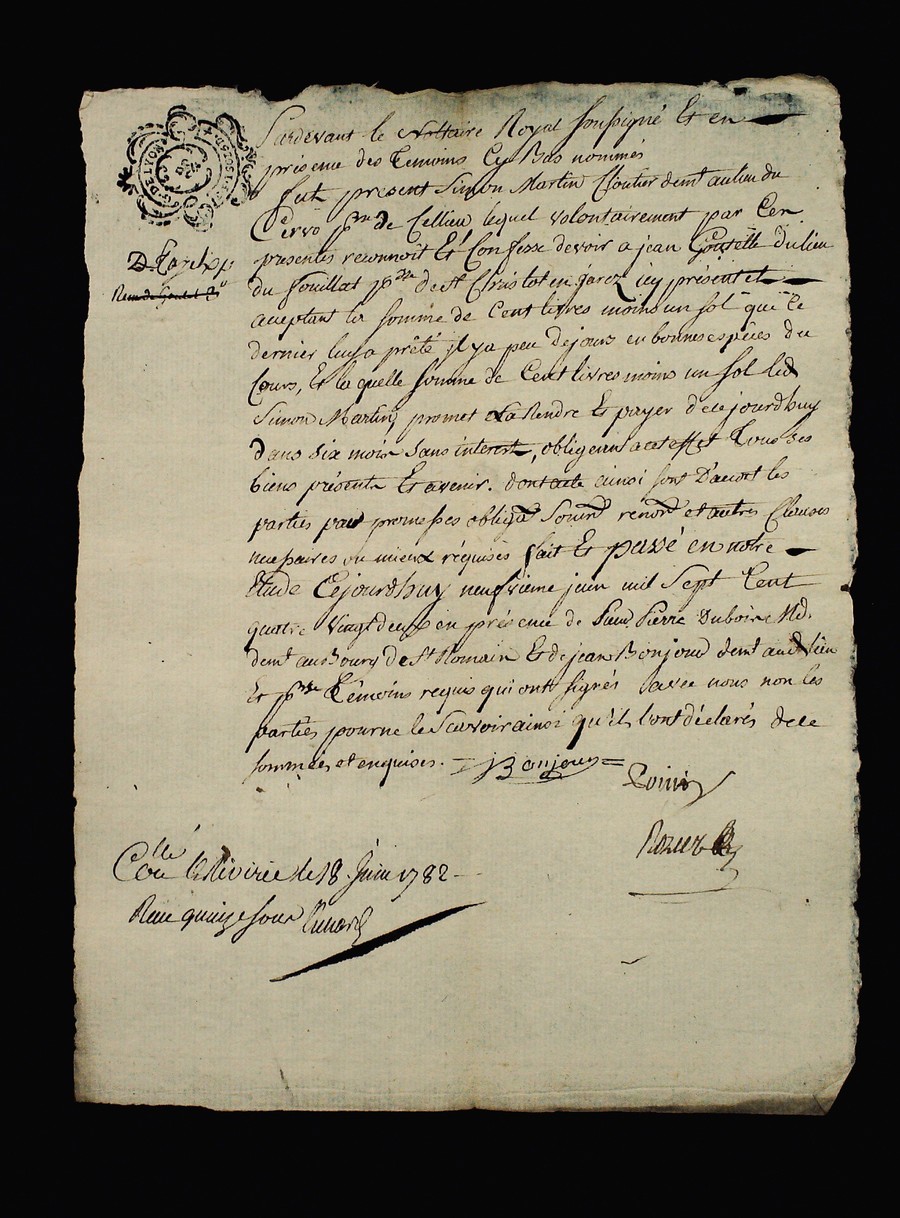 G. DE LYON
Pardevant le Nottaire Royal soussigné Et en
présence des Temoins Cy Bas nommés
fut present Simon Martin Cloutier demt au lieu du
Cervo psse de Cellieu, lequel volontairement par Ces
presentes reconnoit Et Confesse devoir a jean Goutelle du lieu
du fouillat psse de St Christot en jarez icy présent et
aceptant la somme de Cent livres moins un sol que Ce
dernier luy a prêté il y a peu de jours en bonnes espèces du
Cours, Et la quelle somme de Cent livres moins un sol led
Simon Martin, promet La Rendre Et payer dece jourdhuy
dans six mois sans interest, obligeant a cet effet Tous ses
biens présents Et avenir. dont acte ainsi sont D'acort les
parties par promesses obligd soumd renond et autres Clauses
necessaires ou mieux réquises fait Et passé en notre
Etude Cejourdhuy neufvieme juin mil Sept Cent
quatre Vingt deux en présence de Sieur Pierre Duboire Md.
demt au Bourg De St Romain Et de jean Bonjour demt aud lieu
Et psse Témoins requis qui ont signés avec nous non les
parties pour ne le Scavoir ainsi qu'ils l'ont déclarés de ce
sommées et enquises. Bonjour
Collé
Con le Rivirie le 18 Juin 1782
Reçu quinze sous